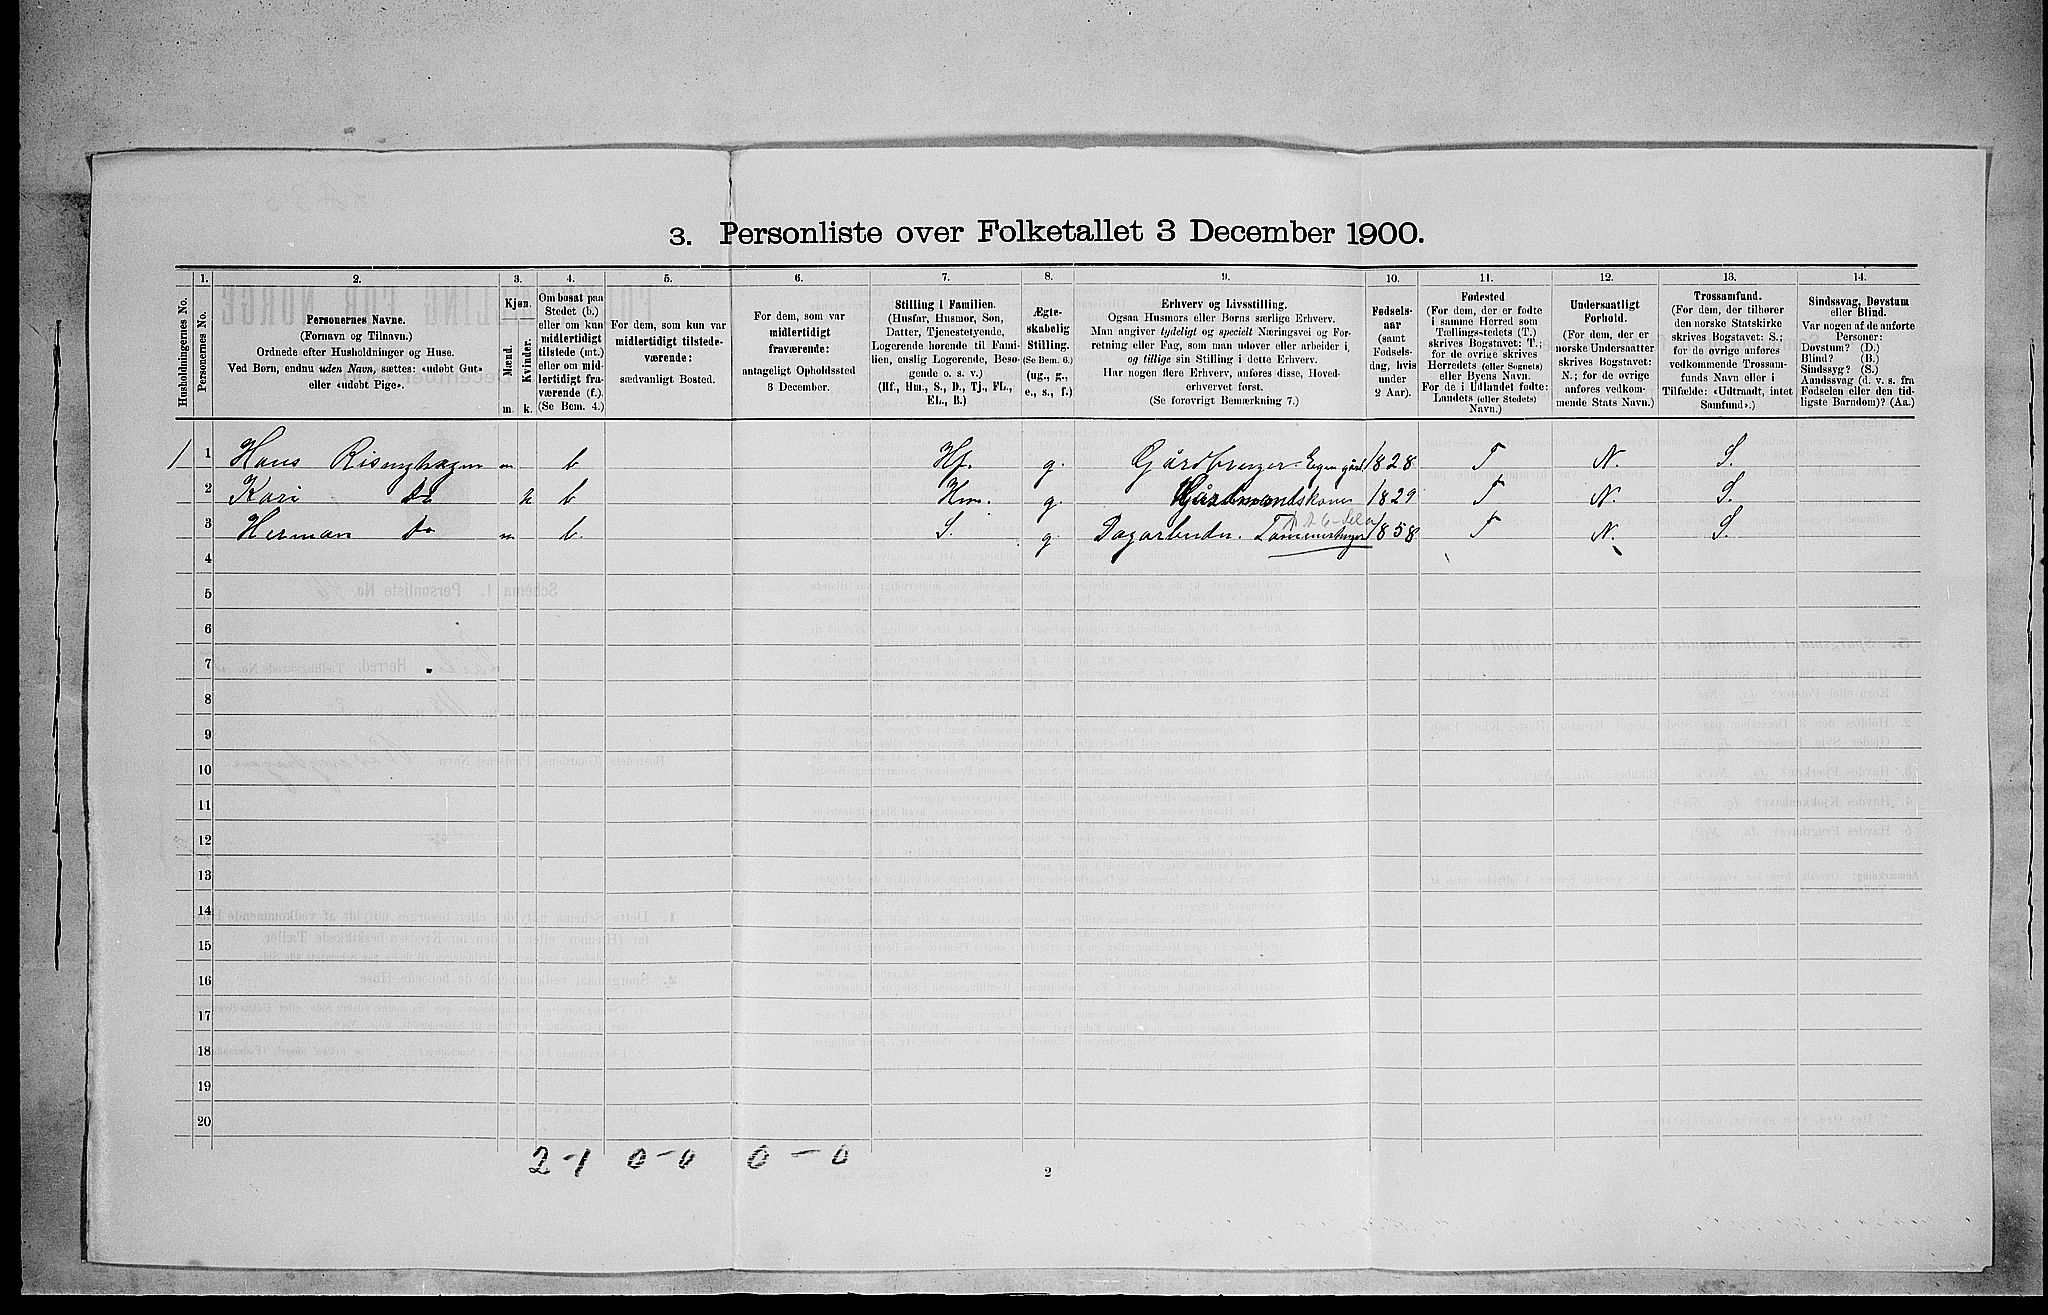 3. Personliste over Folketallet 3 December 1900.
Husholdningernes No.
1. Personernes No.
2. Personernes Navne.
(Fornavn og Tilnavn.)
Ordnede efter Husholdninger og Huse.
Ved Børn, endnu uden Navn, sættes: «udøbt Gut»
eller «udøbt Pige».
3. Kjøn.
Mænd. m.
Kvinder. k.
4. Om bosat paa
Stedet (b.)
eller om kun
midlertidigt
tilstede (mt.)
eller om mid-
lertidigt fra-
værende (f.)
(Se Bem. 4.)
5. For dem, som kun var
midlertidigt tilstede-
værende:
sædvanligt Bosted.
6. For dem, som var
midlertidigt
fraværende:
antageligt Opholdssted
3 December.
7. Stilling i Familien.
(Husfar, Husmor, Søn,
Datter, Tjenestetyende,
Logerende hørende til Fami-
lien, enslig Logerende, Beso-
gende o. s. v.)
(Hf., Hm., S., D., Tj., FL.,
EL., B.)
8. Ægte-
skabelig
Stilling.
(Se Bem. 6.)
(ug., g.,
e., s., f.)
9. Erhverv og Livsstilling.
Ogsaa Husmors eller Børns særlige Erhverv.
Man angiver tydeligt og specielt Næringsvei og For-
retning eller Fag, som man udøver eller arbeider i,
og tillige sin Stilling i dette Erhverv.
Har nogen flere Erhverv, anføres disse, Hoved-
erhvervet først.
(Se forøvrigt Bemærkning 7.)
10. Fødsels-
aar
(samt
Fødsels-
dag, hvis
under
2 Aar).
11. Fødested
(For dem, der er fødte
i samme Herred som
Tællings-stedets (T.)
skrives Bogstavet: T.;
for de øvrige skrives
Herredets (eller Sognets)
eller Byens Navn.
For de i Udlandet fødte:
Landets (eller Stedets)
Navn.)
12. Undersaatligt
Forhold.
(For dem, der er
norske Undersaatter
skrives Bogstavet:
N.; for de øvrige
anføres vedkom-
mende Stats Navn.)
13. Trossamfund.
(For dem, der tilhører
den norske Statskirke
skrives Bogstavet: S.;
for de øvrige anføres
vedkommende Trossam-
funds Navn eller i
Tilfælde: «Udtraadt, intet
Samfund».)
14. Sindssvag, Døvstum
eller Blind.
Var nogen af de anførte
Personer:
Døvstum? (D.)
Blind? (B.)
Sindssyg? (S.)
Aandssvag (d. v. s. fra
Fødselen eller den tid-
ligste Barndom)? (Aa.)
1 1 Hans Risinghagen m b Hf. g. Gårdbruger Egen gård 1828 T N. S.
2 Kari Do k b Hm. g. Gårdmandskone 1829 T N. S.
3 Herman Do m b. S. g. Dagarbeider. Tømmerhuger 1858 T N. S.
4
5
6
7
8
9
10
11
12
13
14
15
16
17
18
19
20
2-1 0-0 0-0
2